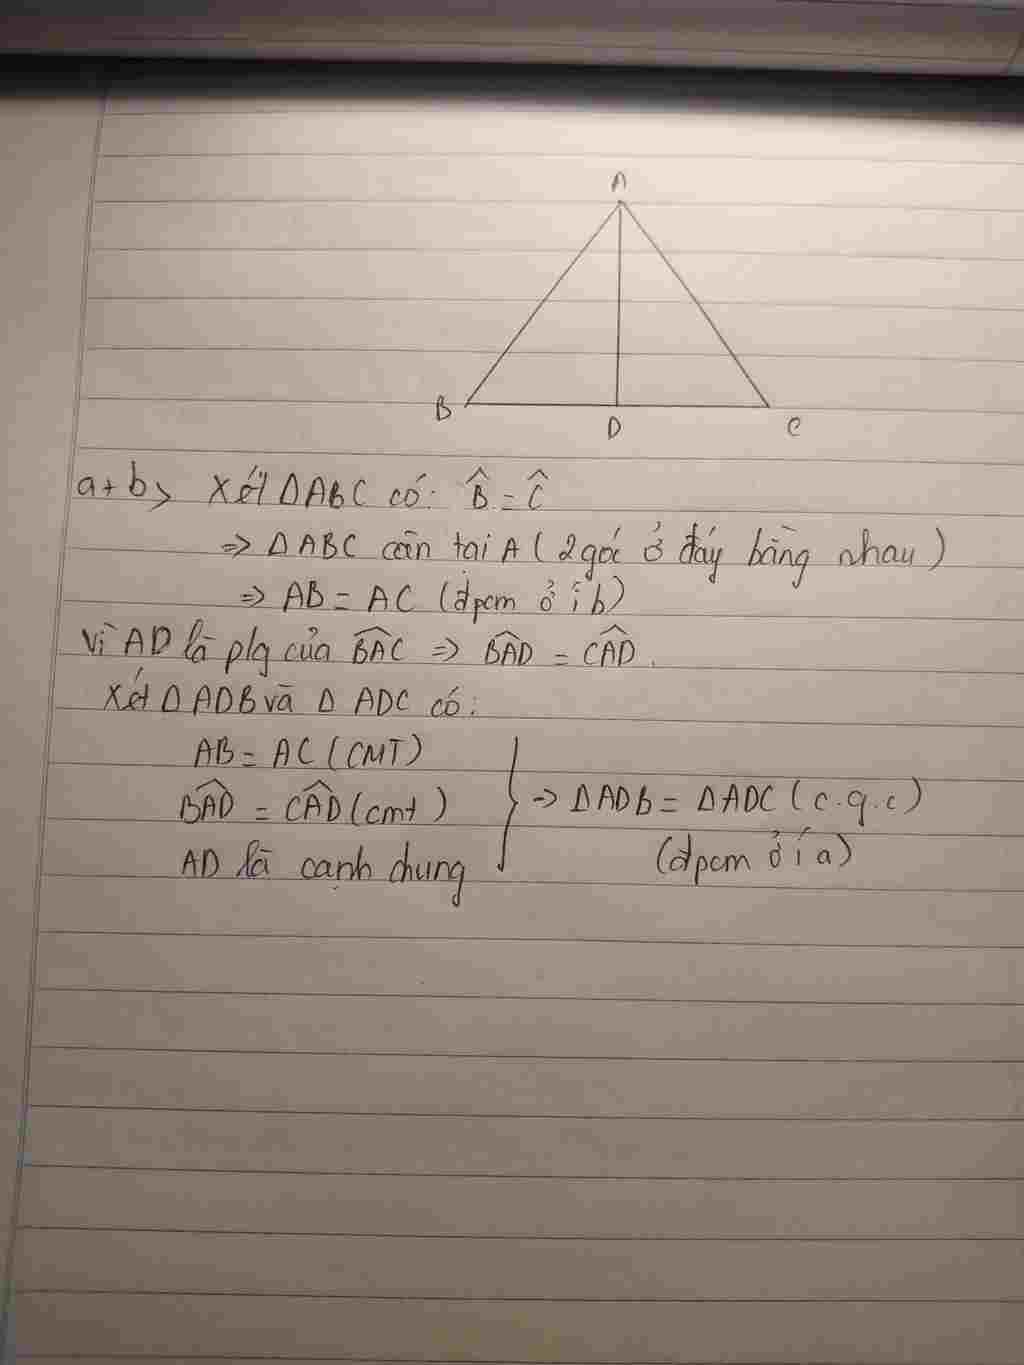 A
B
D
C
a+b> Xét ΔABC có: B̂ = Ĉ
=> ΔABC cân tại A (2 góc ở đáy bằng nhau)
=> AB = AC (đpcm ở í b)
Vì AD là plg của B̂AC => B̂AD = ĈAD.
Xét ΔADB và Δ ADC có:
AB = AC (CMT)
B̂AD = ĈAD (cmt) => ΔADB = ΔADC (c.g.c)
AD là cạnh chung (đpcm ở í a)